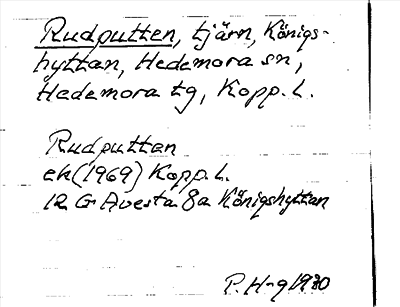 Rudputten, tjärn, Königs-
hyttan, Hedemora sn,
Hedemora tg, Kopp. l.
Rudputtan
ek (1969) Kopp. l.
12 G Avesta 8a Königshyttan
P. H-g 1980